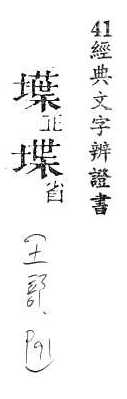 41經典文字辨證書
正堞省
(土部. P91)